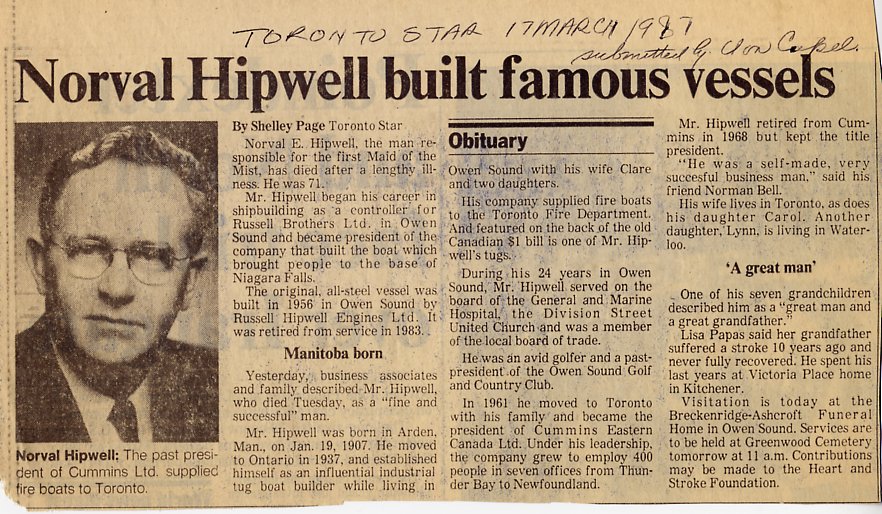 TORONTO STAR 17 MARCH 1987
submitted by
Norval Hipwell built famous vessels
Norval Hipwell: The past presi-
dent of Cummins Ltd. supplied
fire boats to Toronto.
By Shelley Page Toronto Star
Norval E. Hipwell, the man re-
sponsible for the first Maid of the
Mist, has died after a lengthy ill-
ness. He was 71.
Mr. Hipwell began his career in
shipbuilding as a controller for
Russell Brothers Ltd. in Owen
Sound and became president of the
company that built the boat which
brought people to the base of
Niagara Falls.
The original, all-steel vessel was
built in 1956 in Owen Sound by
Russell Hipwell Engines Ltd. It
was retired from service in 1983.
Manitoba born
Yesterday, business associates
and family described Mr. Hipwell,
who died Tuesday, as a "fine and
successful" man.
Mr. Hipwell was born in Arden,
Man., on Jan. 19, 1907. He moved
to Ontario in 1937, and established
himself as an influential industrial
tug boat builder while living in
Obituary
Owen Sound with his wife Clare
and two daughters.
His company supplied fire boats
to the Toronto Fire Department.
And featured on the back of the old
Canadian $1 bill is one of Mr. Hip-
well's tugs.
During his 24 years in Owen
Sound, Mr. Hipwell served on the
board of the General and Marine
Hospital, the Division Street
United Church and was a member
of the local board of trade.
He was an avid golfer and a past-
president of the Owen Sound Golf
and Country Club.
In 1961 he moved to Toronto
with his family and became the
president of Cummins Eastern
Canada Ltd. Under his leadership,
the company grew to employ 400
people in seven offices from Thun-
der Bay to Newfoundland.
Mr. Hipwell retired from Cum-
mins in 1968 but kept the title
president.
"He was a self-made, very
succesful business man," said his
friend Norman Bell.
His wife lives in Toronto, as does
his daughter Carol. Another
daughter, Lynn, is living in Water-
loo.
'A great man'
One of his seven grandchildren
described him as a "great man and
a great grandfather."
Lisa Papas said her grandfather
suffered a stroke 10 years ago and
never fully recovered. He spent his
last years at Victoria Place home
in Kitchener.
Visitation is today at the
Breckenridge-Ashcroft Funeral
Home in Owen Sound. Services are
to be held at Greenwood Cemetery
tomorrow at 11 a.m. Contributions
may be made to the Heart and
Stroke Foundation.